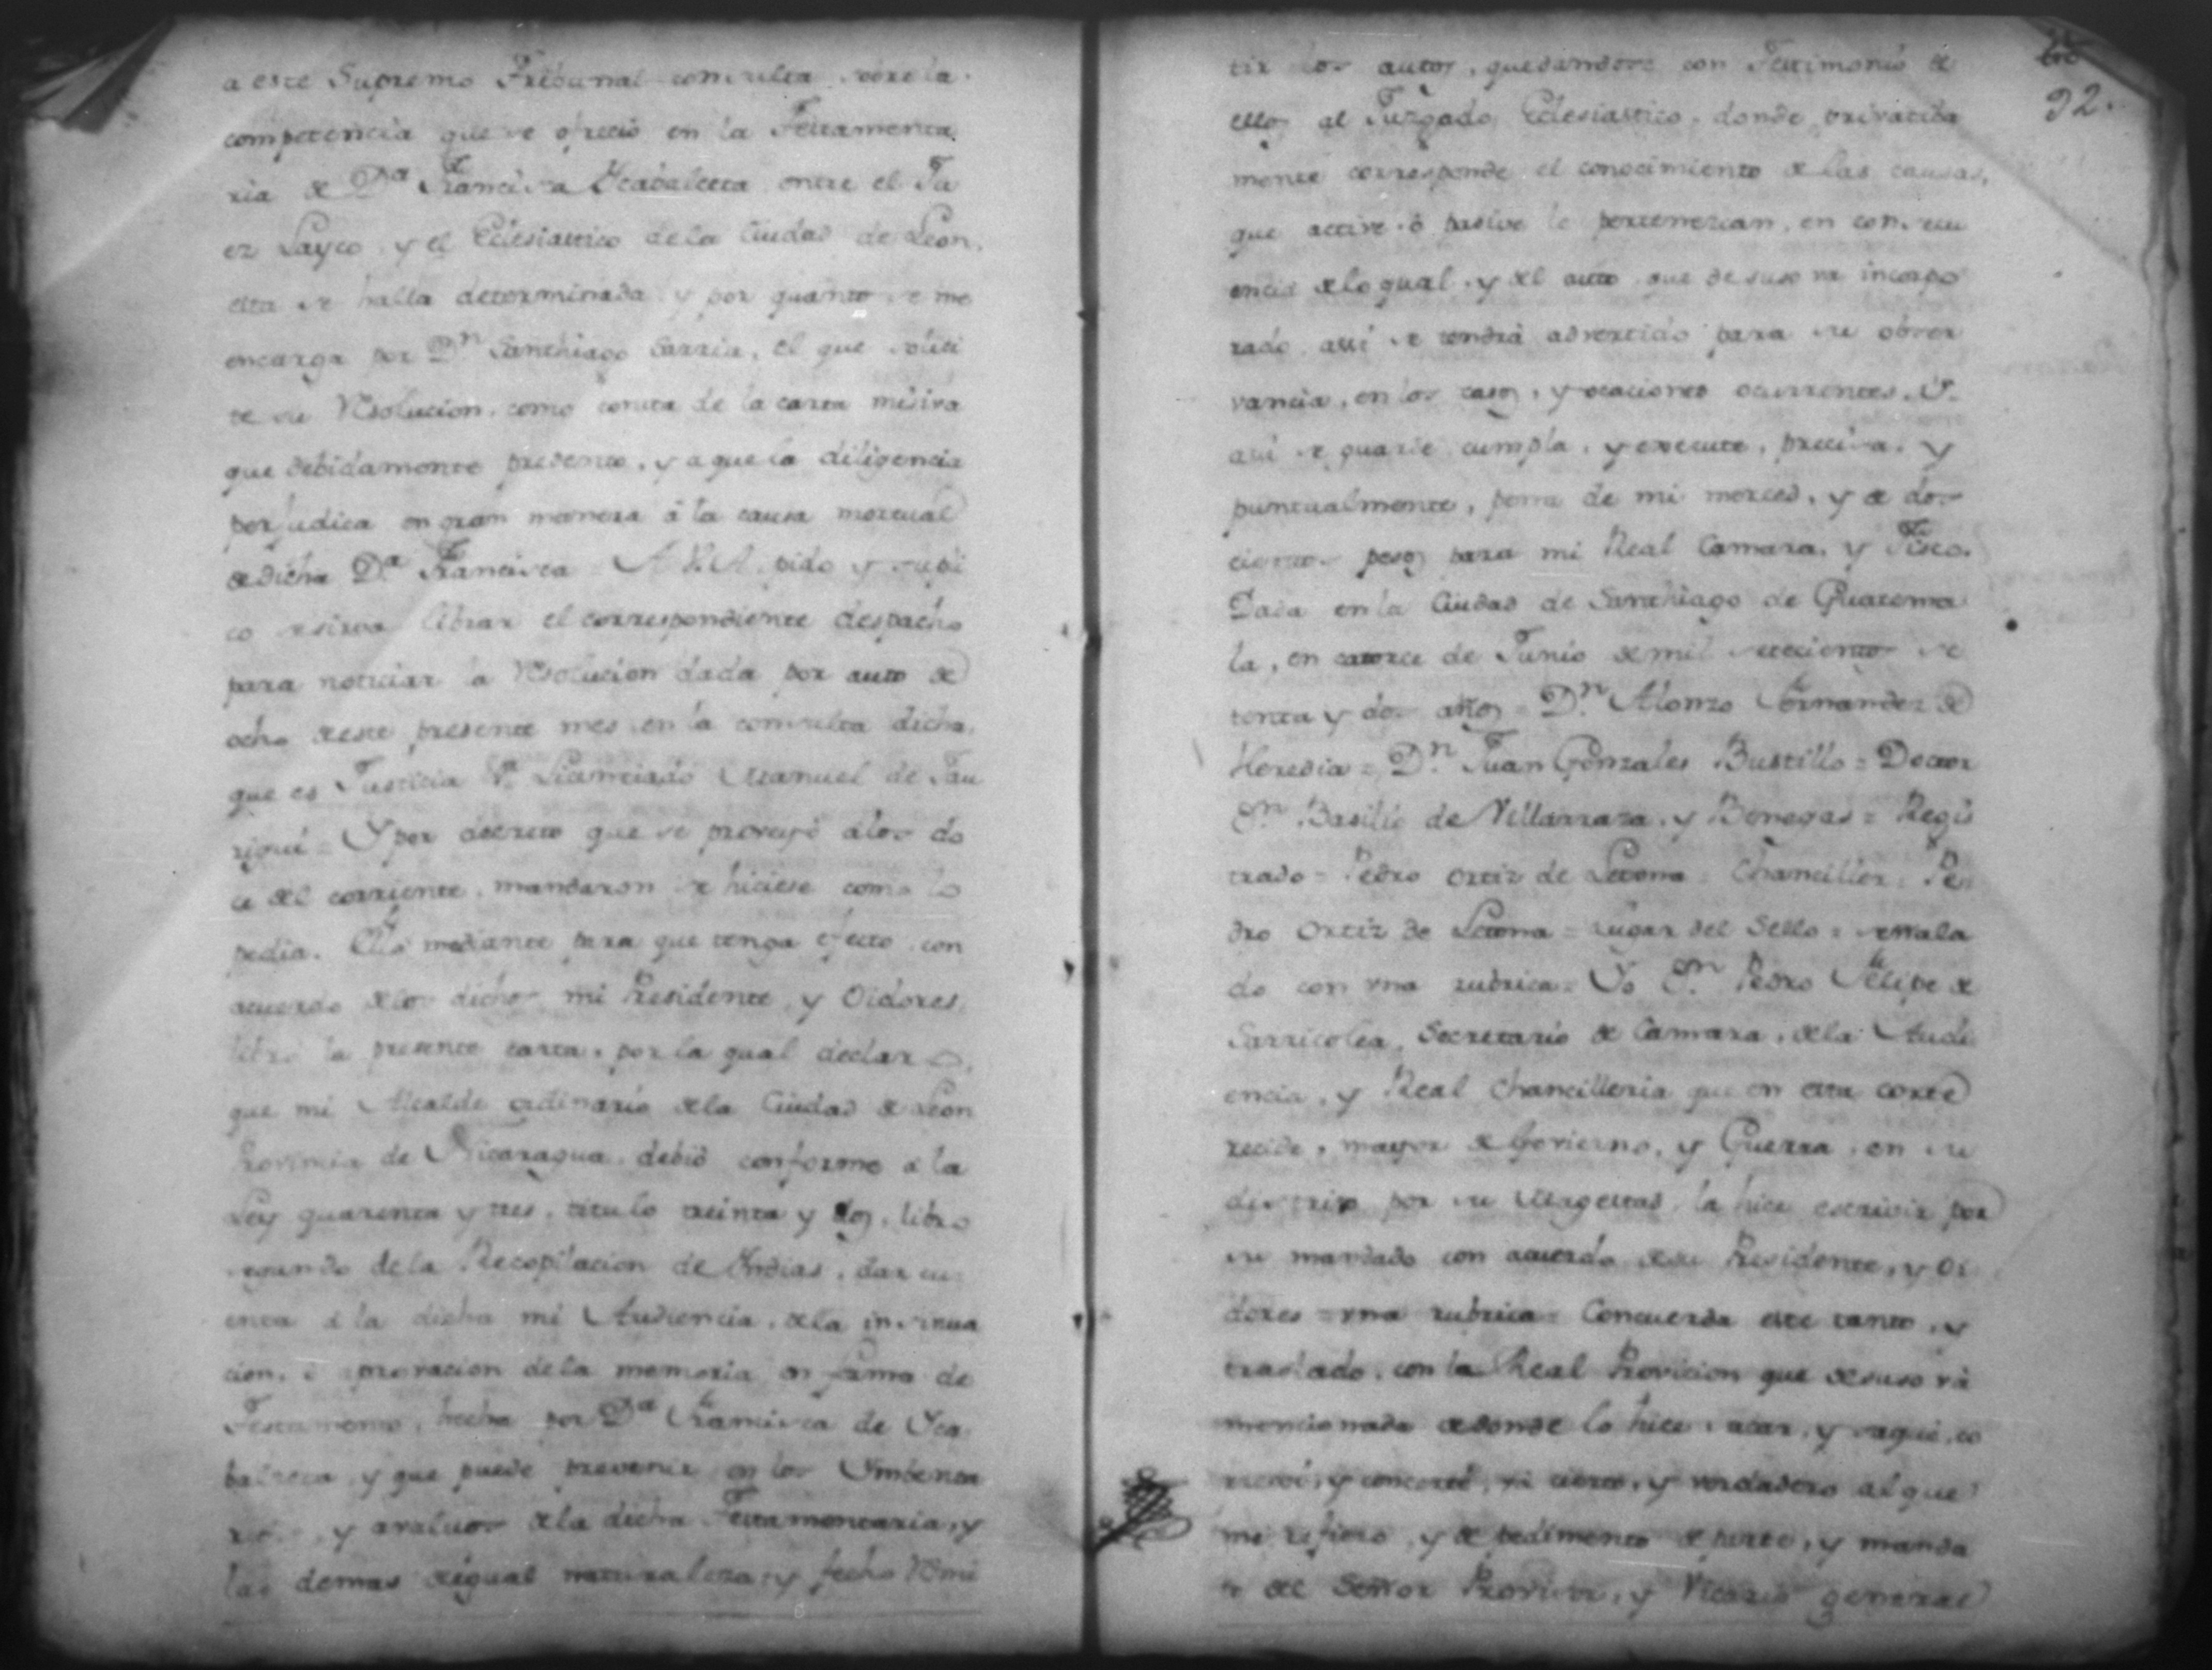 a este Supremo Tribunal consulta sobre la
competencia que se ofrecio en la Testamenta
ria de D.ª Francisca Ycabalceta entre el Ju
ez Layco y el Eclesiastico dela Ciudad de Leon,
esta se halla determinada y por quanto se me
encarga por D.n Santhiago Sarria, el que solici
te su Resolucion, como consta de la carta misiva
que debidamente presento, y a que la diligencia
perjudica en gran manera á la causa mortual
de dicha D.ª Francisca = A V.A. pido y supli
co se sirva librar el correspondiente despacho
para noticiar la Resolucion dada por auto de
ocho de este presente mes en la consulta dicha,
que es Justicia Licenciado Manuel de Jau
rigui = Y por decreto que se proveyó a los do
ce del corriente, mandaron se hiciese como lo
pedia. Ello mediante para que tenga efecto con
acuerdo de los dichos mi Presidente, y Oidores,
libro la presente carta, por la qual declaro,
que mi Alcalde ordinario de la Ciudad de Leon
Provincia de Nicaragua, debió conforme a la
Ley quarenta y tres, titulo treinta y dos, libro
segundo dela Recopilacion de Yndias, dar cu
enta á la dicha mi Audiencia, de la insinua
cion, ó aprovacion dela memoria en forma de
Testamento, hecha por D.ª Francisca de Yca
balzeta, y que puede prevenir en los Ymbenta
rios, y avaluos de la dicha Testamentaria, y
las demas de igual naturaleza, y fecho Remi
tir los autos, quedandose con Testimonio de
ellos al Juzgado Eclesiastico, donde privativa
mente corresponde el conocimiento de las causas,
que active ó pasive le pertenezcan, en consecu
encia de lo qual, y del auto que de suso va incorpo
rado, assi se tendrá advertido para su obser
vancia, en los casos, y ocaciones ocurrentes. Y
asi se guarde cumpla, y execute, precisa, y
puntualmente, pena de mi merced, y de dos
cientos pesos para mi Real Camara, y Fisco.
Dada en la Ciudad de Santhiago de Guatema
la, en catorce de Junio de mil setecientos se
tenta y dos años = D.n Alonzo Fernandez de
Heredia = D.n Juan Gonzales Bustillo = Doctor
D.n Basilio de Villarraza, y Benegas = Regis
trado = Pedro Ortiz de Letona = Chanciller = Pe
dro Ortiz de Letona = Lugar del Sello = señala
do con una rubrica = Yo D.n Pedro Felipe de
Sarricolea, Secretario de Camara, de la Audi
encia, y Real Chancilleria que en esta corte
recide, mayor de Govierno, y Guerra, en su
districto por su Magestad, la hice escrivir por
su mandado con acuerdo de su Presidente, y Oi
dores = una rubrica = Concuerda este tanto, y
traslado, con la Real Provicion que de suso vá
mencionada de donde lo hice sacar, y saqué, co
rrexi, y concerté, vá cierto, y verdadero al que
me refiero, y de pedimento de parte, y manda
to del Señor Provisor, y Vicario general
92.